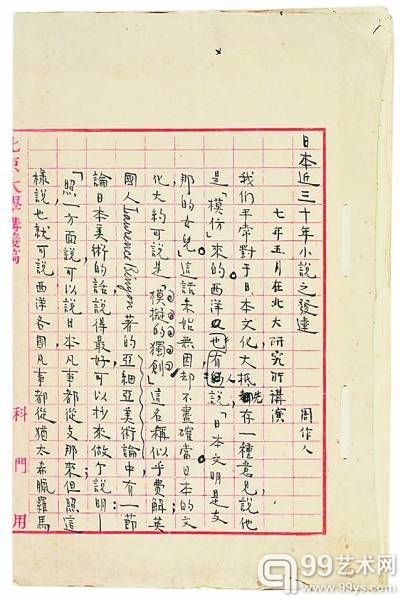 日本近三十年小說之發達
七年五月在北大研究所講演 周作人
我们平常對于日本文化大抵先存一種意見說他
是「模仿」來的。西洋也有人說「日本文明是支
那的女兒」。這話未始無因却不盡確當。日本的文
化大約可說是「模擬的獨創」。這名称似乎費解英
國人Laurence Binyon著的亞細亞美術論中有一節
論日本美術的話說得最好可以抄來做个說明——
「照一方面說可以說日本凡事都從支那來但照這
樣說也就可說西洋各國凡事都從猶太希臘羅馬
北京大學講義稿 科 門 用
99艺术网
www.99ys.com